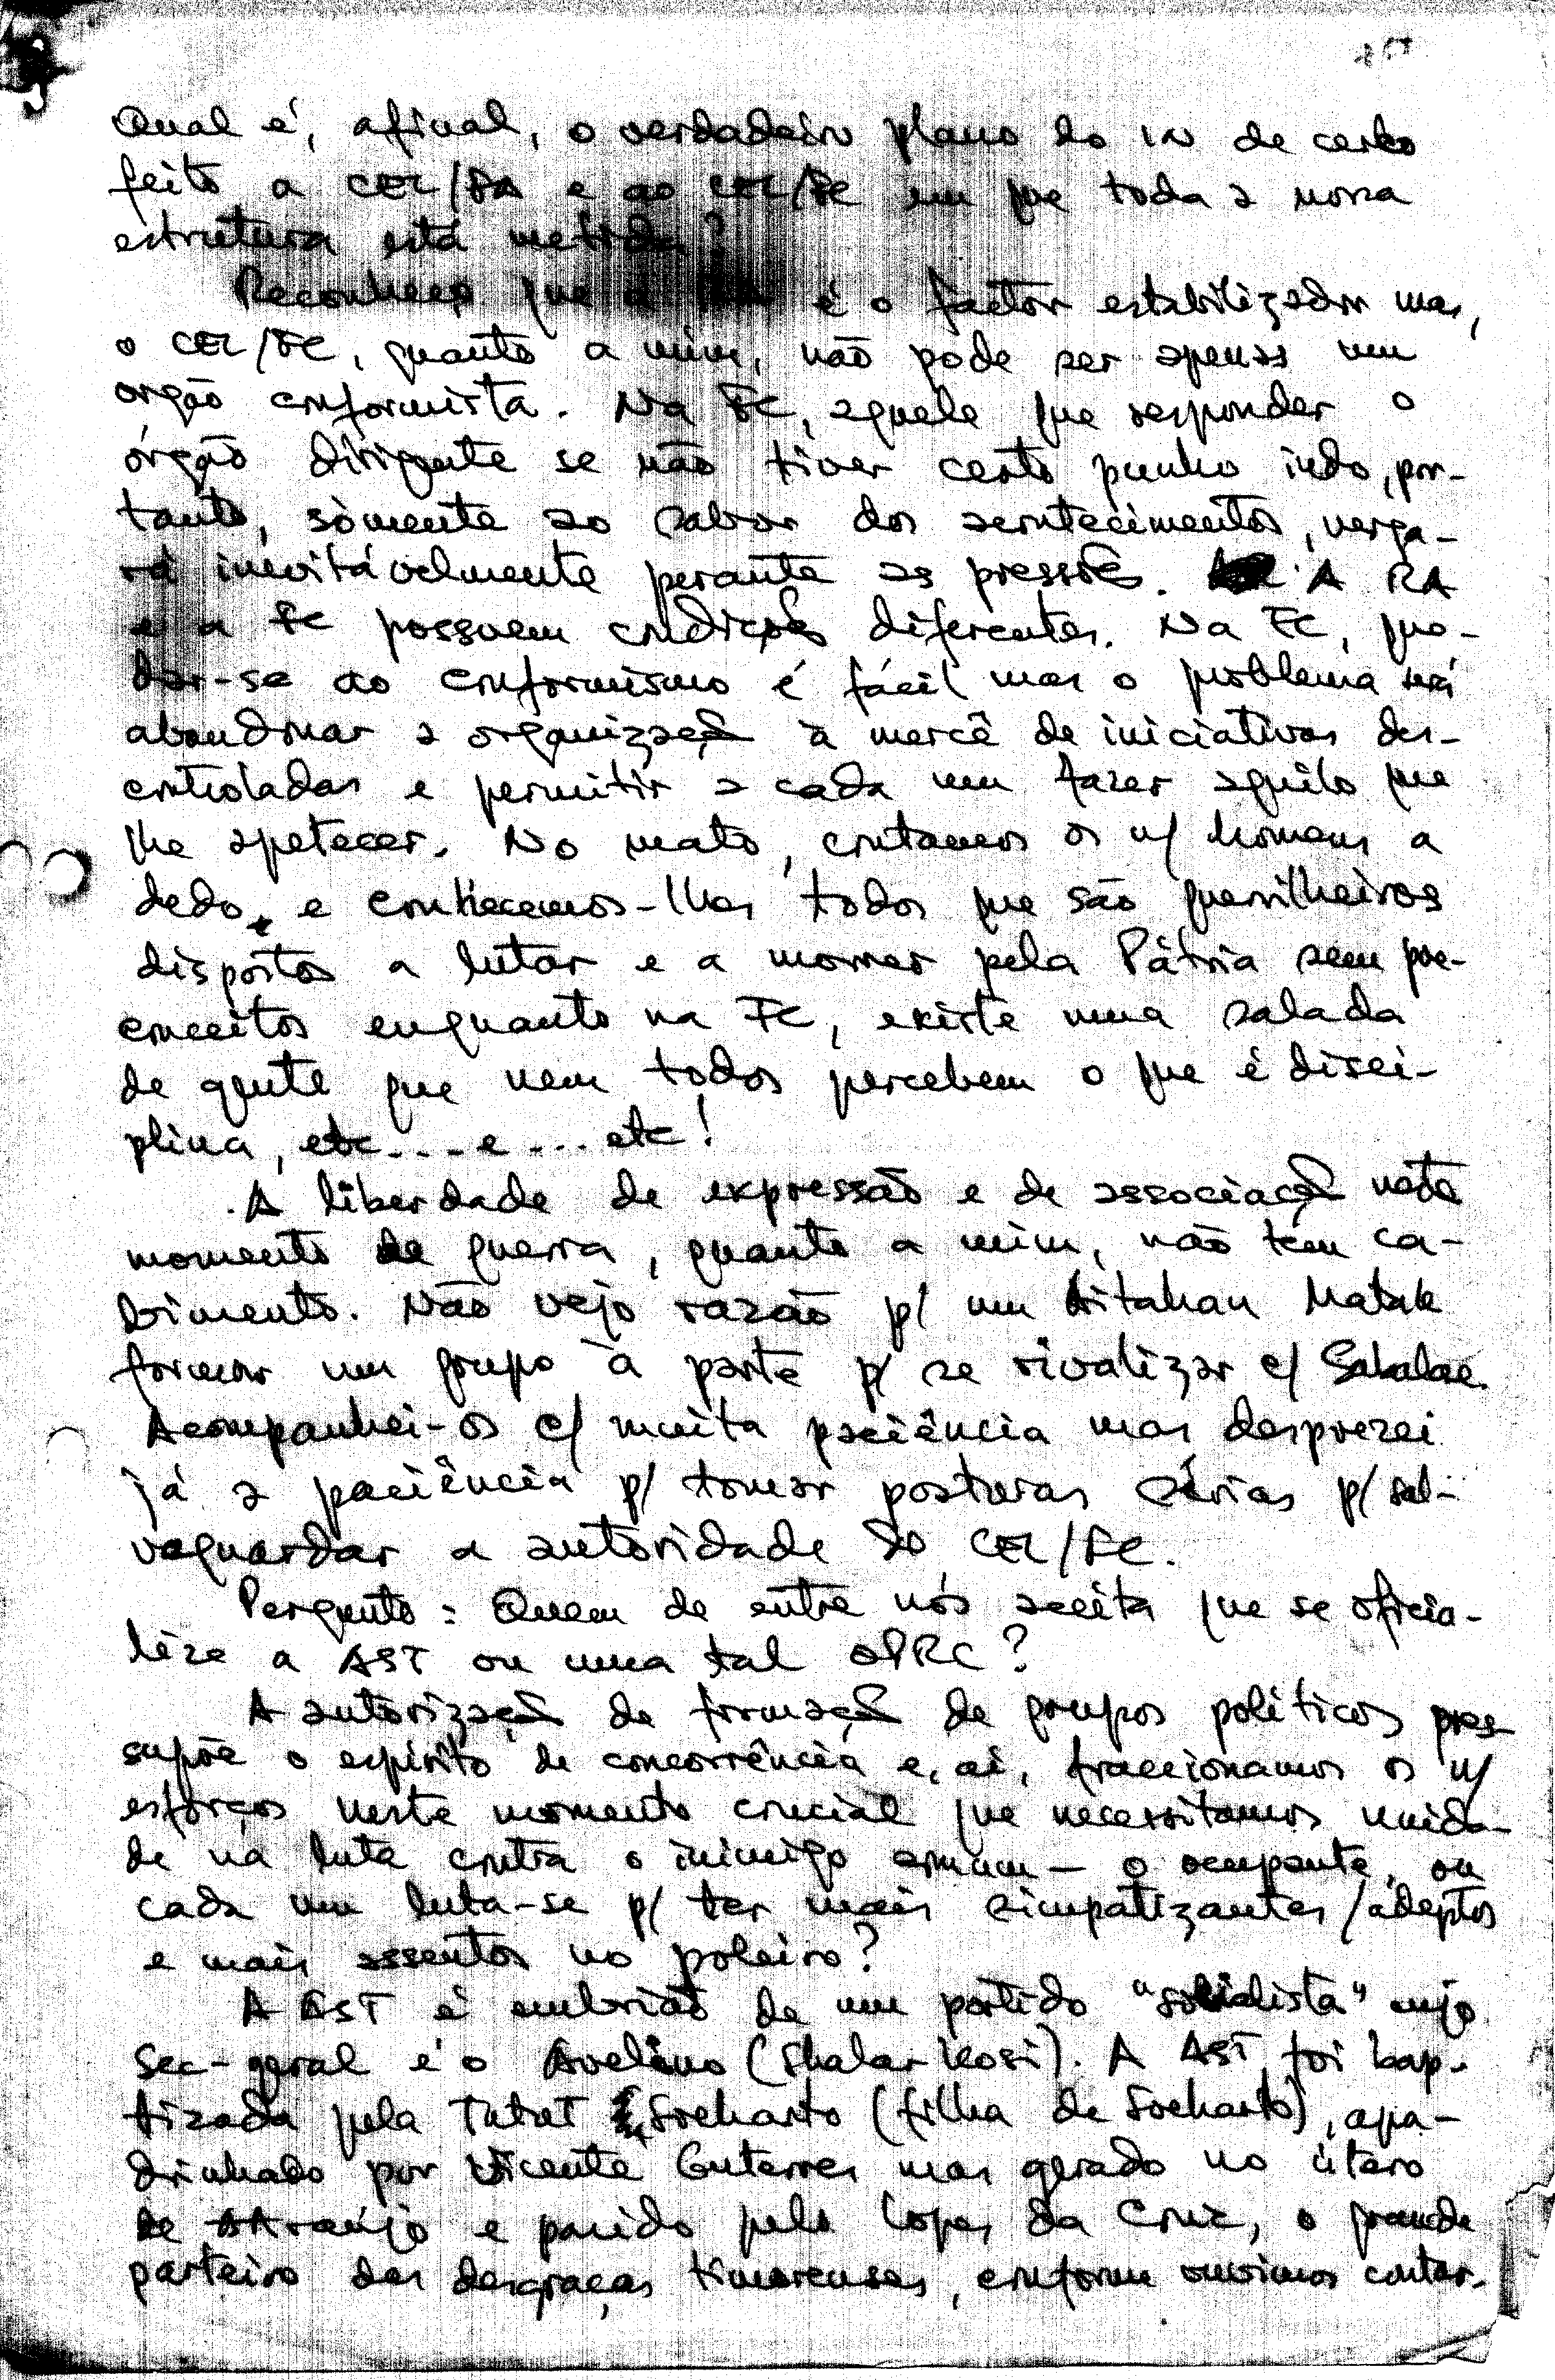 Qual é, afinal, o verdadeiro plano do IN de cerco
feito a CEL/RA e ao CEL/FC em que toda a nossa
estrutura está metida?
Reconheço que a é o factor estabilizador mas,
o CEL/FC, quanto a mim, não pode ser apenas um
orgão conformista. Na FC, aquele que responder o
órgão dirigente se não tiver certo punho indo, por-
tanto, sòmente ao sabor dos acontecimentos, verga-
rá inevitávelmente perante as pressões. A RA
e a FC possuem condições diferentes. Na FC, que-
dar-se ao conformismo é fácil mas o problema será
abandonar a organização à mercê de iniciativas des-
controladas e permitir a cada um fazer aquilo que
lhe apetecer. No mato, contamos os n/ homens a
dedo, e conhecemos-lhes todos que são guerrilheiros
dispostos a lutar e a morrer pela Pátria sem pre-
conceitos enquanto na FC, existe uma salada
de gente que nem todos percebem o que é disci-
plina, etc....e....etc!
A liberdade de expressão e de associação neste
momento de guerra, quanto a mim, não tem ca-
bimento. Não vejo razão p/ um Aitahan Matak
formar um grupo à parte p/ se rivalizar c/ Sakalae.
Acompanhei-os c/ muita paciência mas desprezei
já a paciência p/ tomar posturas sérias p/ sal-
vaguardar a autoridade do CEL/FC.
Pergunto: Quem de entre nós aceita que se oficia-
lize a AST ou uma tal OPRC?
A autorização de formação de grupos políticos pres-
supõe o espírito de concorrência e, aí, fraccionamos os n/
esforços neste momento crucial que necessitamos unida-
de na luta contra o inimigo comum - o ocupante, ou
cada um luta-se p/ ter mais simpatizantes/adeptos
e mais assentos no poleiro?
A AST é embrião de um partido "socialista" cujo
Sec-geral é o Avelino (Shalar Kosi). A AST foi bap-
tizada pela Tutut Soeharto (filha de Soeharto), apa-
drinhado por Vicente Guterres mas gerado no útero
de Araújo e parido pelo Lopes da Cruz, o grande
parteiro das desgraças timorenses, conforme ouvimos contar.